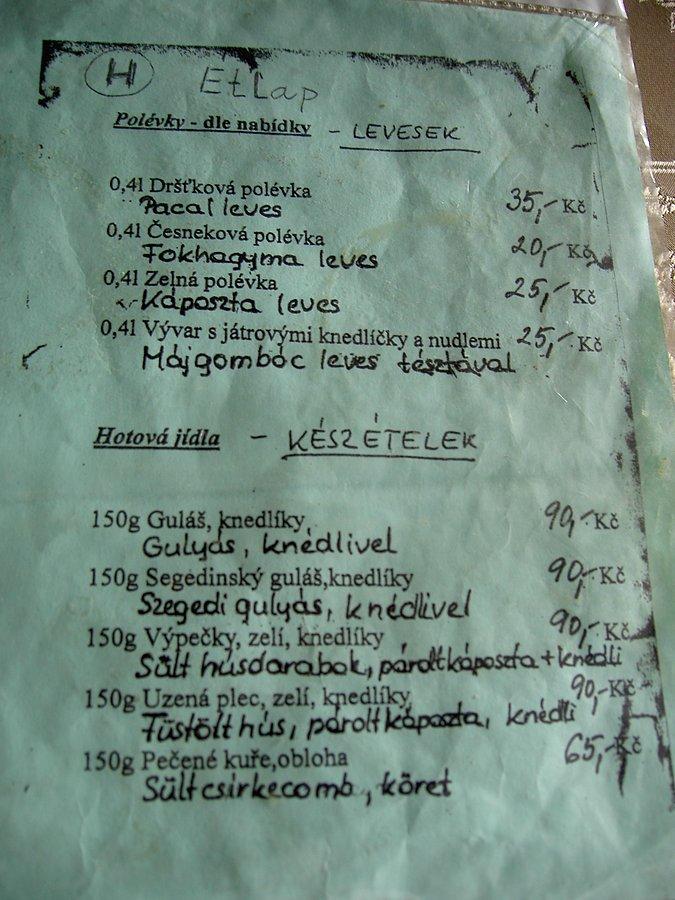 H Étlap
Polévky - dle nabídky - LEVESEK
0,4l Dršťková polévka 35,- Kč
Pacal leves
0,4l Česneková polévka 20,- Kč
Fokhagyma leves
0,4l Zelná polévka 25,- Kč
Káposzta leves
0,4l Vývar s játrovými knedlíčky a nudlemi 25,- Kč
Májgombóc leves tésztával
Hotová jídla - KÉSZÉTELEK
150g Guláš, knedlíky, 90,- Kč
Gulyás, knédlivel
150g Segedinský guláš,knedlíky 90,- Kč
Szegedi gulyás, knédlivel
150g Výpečky, zelí, knedlíky 90,- Kč
Sült húsdarabok, párolt káposzta + knédli
150g Uzená plec, zelí, knedlíky 90,- Kč
Füstölt hús, párolt káposzta, knédli
150g Pečené kuře,obloha 65,- Kč
Sült csirkecomb, köret